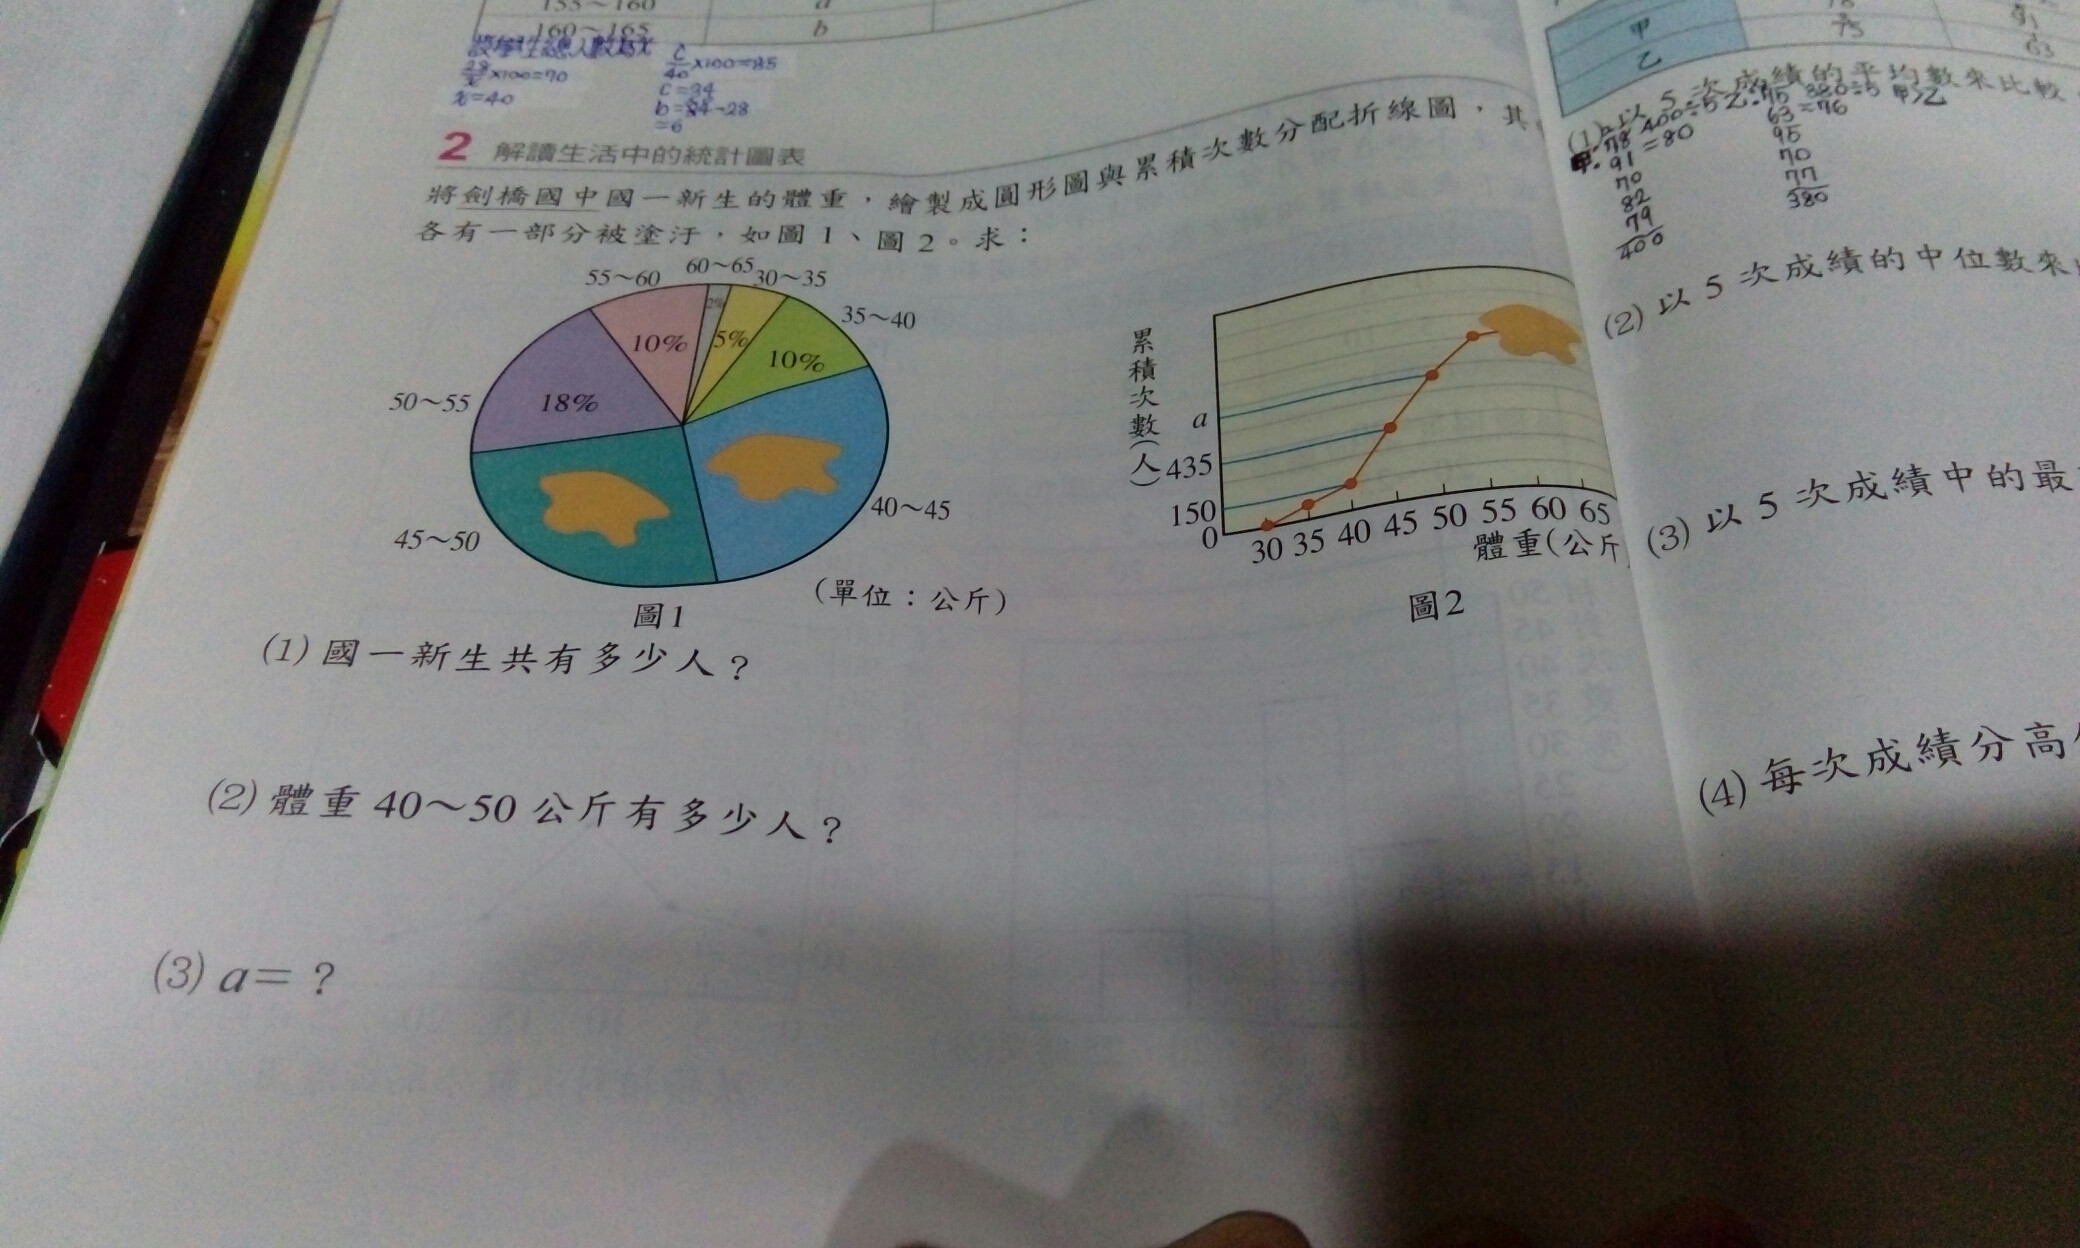 155～160 a
160～165 b
設學生總人數為x
28/x ×100=70
x=40
c/40 ×100=85
c=34
b=34-28
=6
2 解讀生活中的統計圖表
將劍橋國中國一新生的體重，繪製成圓形圖與累積次數分配折線圖，其
各有一部分被塗汙，如圖1、圖2。求：
55～60 60～65 30～35
35～40
2%
10% 5% 10%
50～55 18%
40～45
45～50
(單位：公斤)
圖1
累積次數(人)
a
435
150
0
30 35 40 45 50 55 60 65
體重(公斤
圖2
(1) 國一新生共有多少人？
(2) 體重 40～50 公斤有多少人？
(3) a=？
甲 75 91
乙 63
(1) 以 5 次成績的平均數來比較
甲. 78 400÷5
91 =80
70
82
79
400
乙: 75 380÷5 甲>乙
63 =76
95
70
77
380
(2) 以 5 次成績的中位數來
(3) 以 5 次成績中的最
(4) 每次成績分高